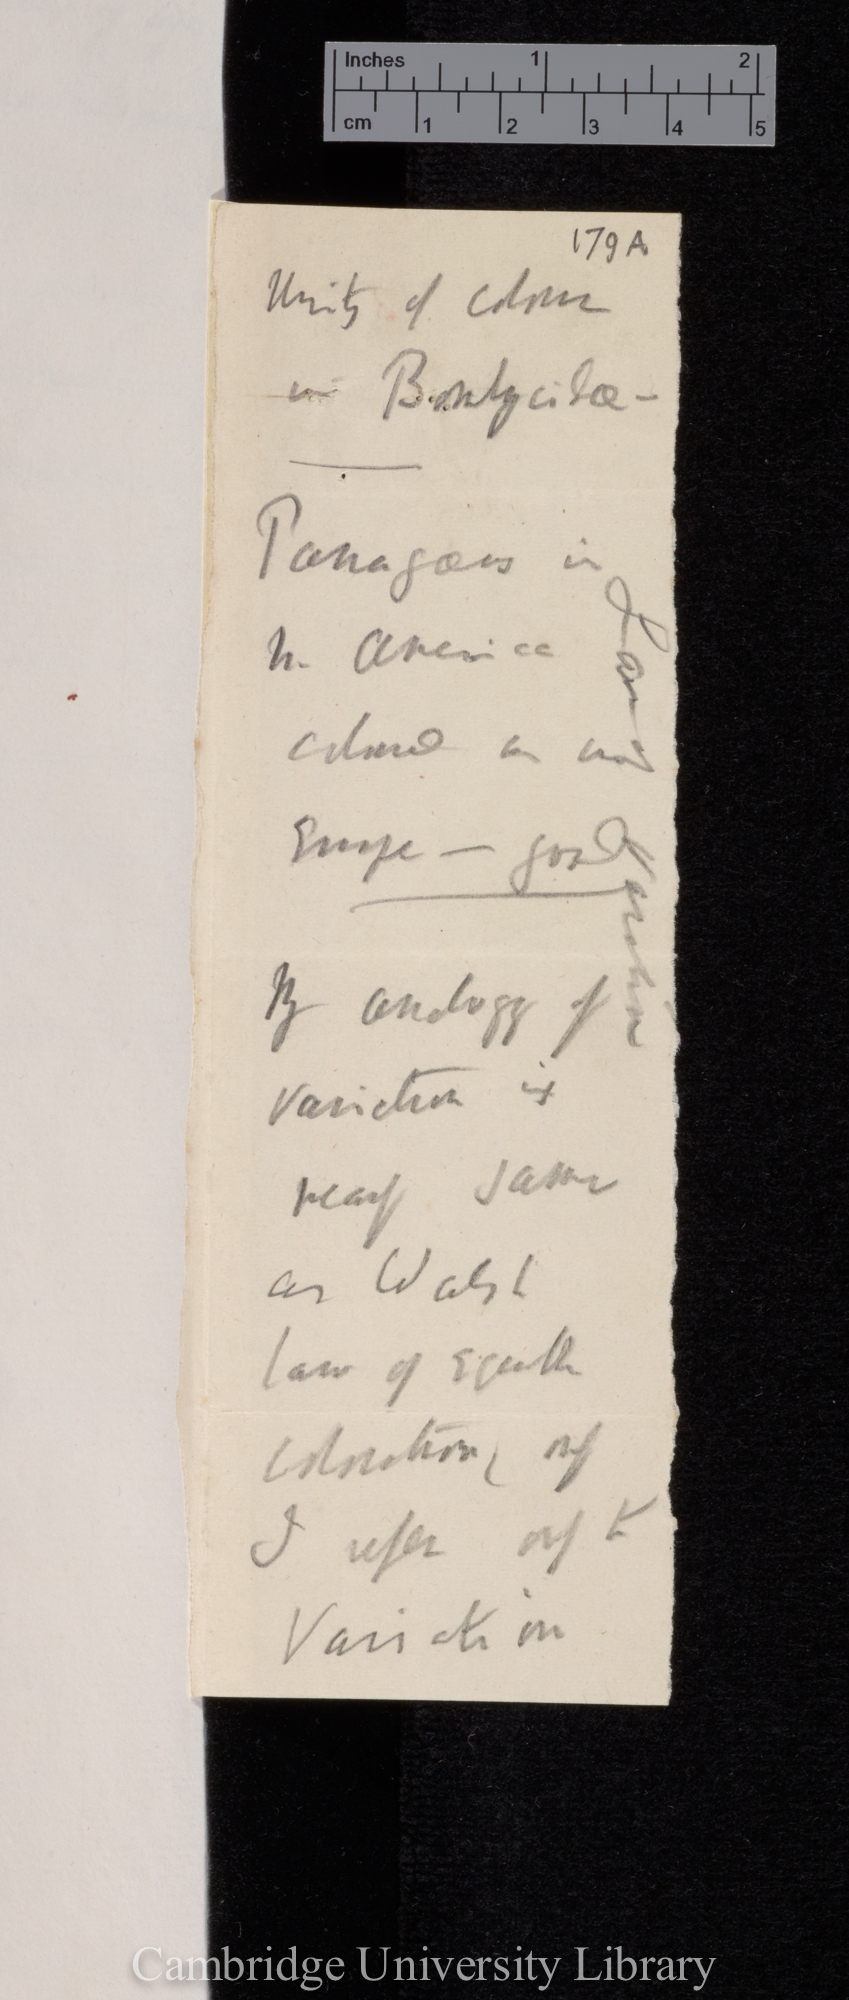 Inches 1 2
cm 1 2 3 4 5
179A
Unity of colour
in Bombycidæ -
Panagæus in
N. America
coloured as in
Europe — good
By analogy of
variation is
nearly same
as Walsh
law of Equable
coloration, only
I refer only to
Variation
Cambridge University Library